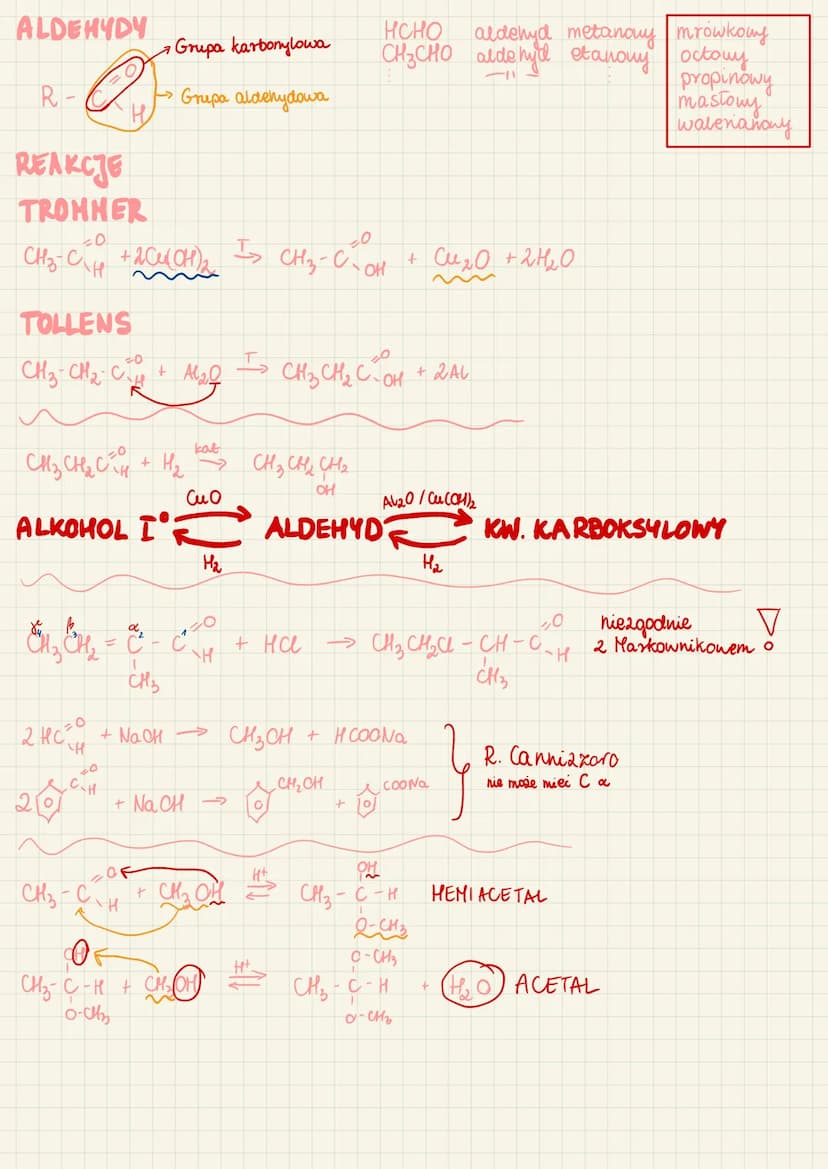 ALDEHYDY
Grupa karbonylowa
R - C =O H
Grupa aldehydowa
HCHO aldehyd metanowy
CH3CHO aldehyd etanowy
—ıı—
mrówkowy
octowy
propinowy
masłowy
walerianowy
REAKCJE
TROMMER
CH3-C =O \H + 2Cu(OH)2 T→ CH3-C =O \OH + Cu2O + 2H2O
TOLLENS
CH3-CH2-C =O \H + Ag2O T→ CH3CH2C =O \OH + 2Ag
CH3CH2C =O \H + H2 kat→ CH3CH2CH2
OH
CuO Ag2O / Cu(OH)2
ALKOHOL I° ⇄ ALDEHYD ⇄ KW. KARBOKSYLOWY
H2 H2
γ 4 β 3 α 2 1
CH3CH2 = C - C =O \H + HCl → CH3CH2Cl - CH - C =O \H
CH3 CH3
niezgodnie
z Markownikowem !
2 HC =O \H + NaOH → CH3OH + HCOONa
2 C =O \H + NaOH → CH2OH + COONa
R. Cannizzaro
nie może mieć C α
CH3 - C =O \H + CH3OH H+ ⇄ CH3 - C - H HEMIACETAL
OH
O-CH3
OH O-CH3
CH3 - C - H + CH3OH H+ ⇄ CH3 - C - H + H2O ACETAL
O-CH3 O-CH3